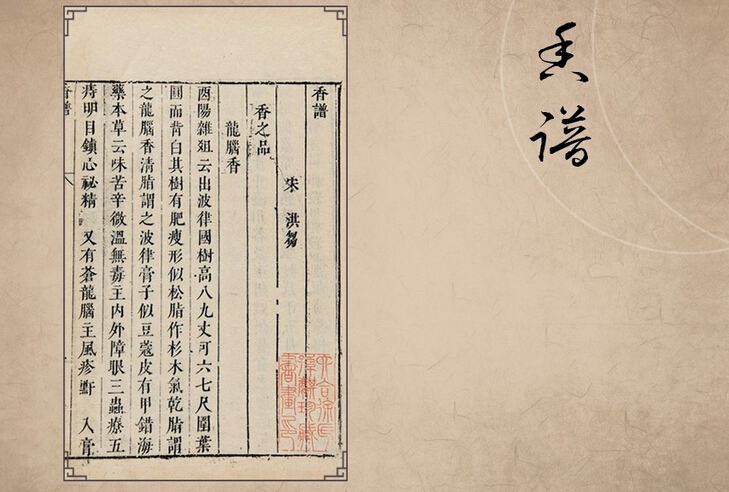 香譜
香譜
宋 洪芻
香之品
龍腦香
酉陽雜俎云出波律國樹高八九丈可六七尺圍葉
圓而背白其樹有肥瘦形似松脂作杉木氣乾脂謂
之龍腦香清脂謂之波律膏子似豆蔻皮有甲錯海
藥本草云味苦辛微溫無毒主內外障眼三蟲療五
痔明目鎮心祕精 又有蒼龍腦主風疹䵟 入膏
香譜